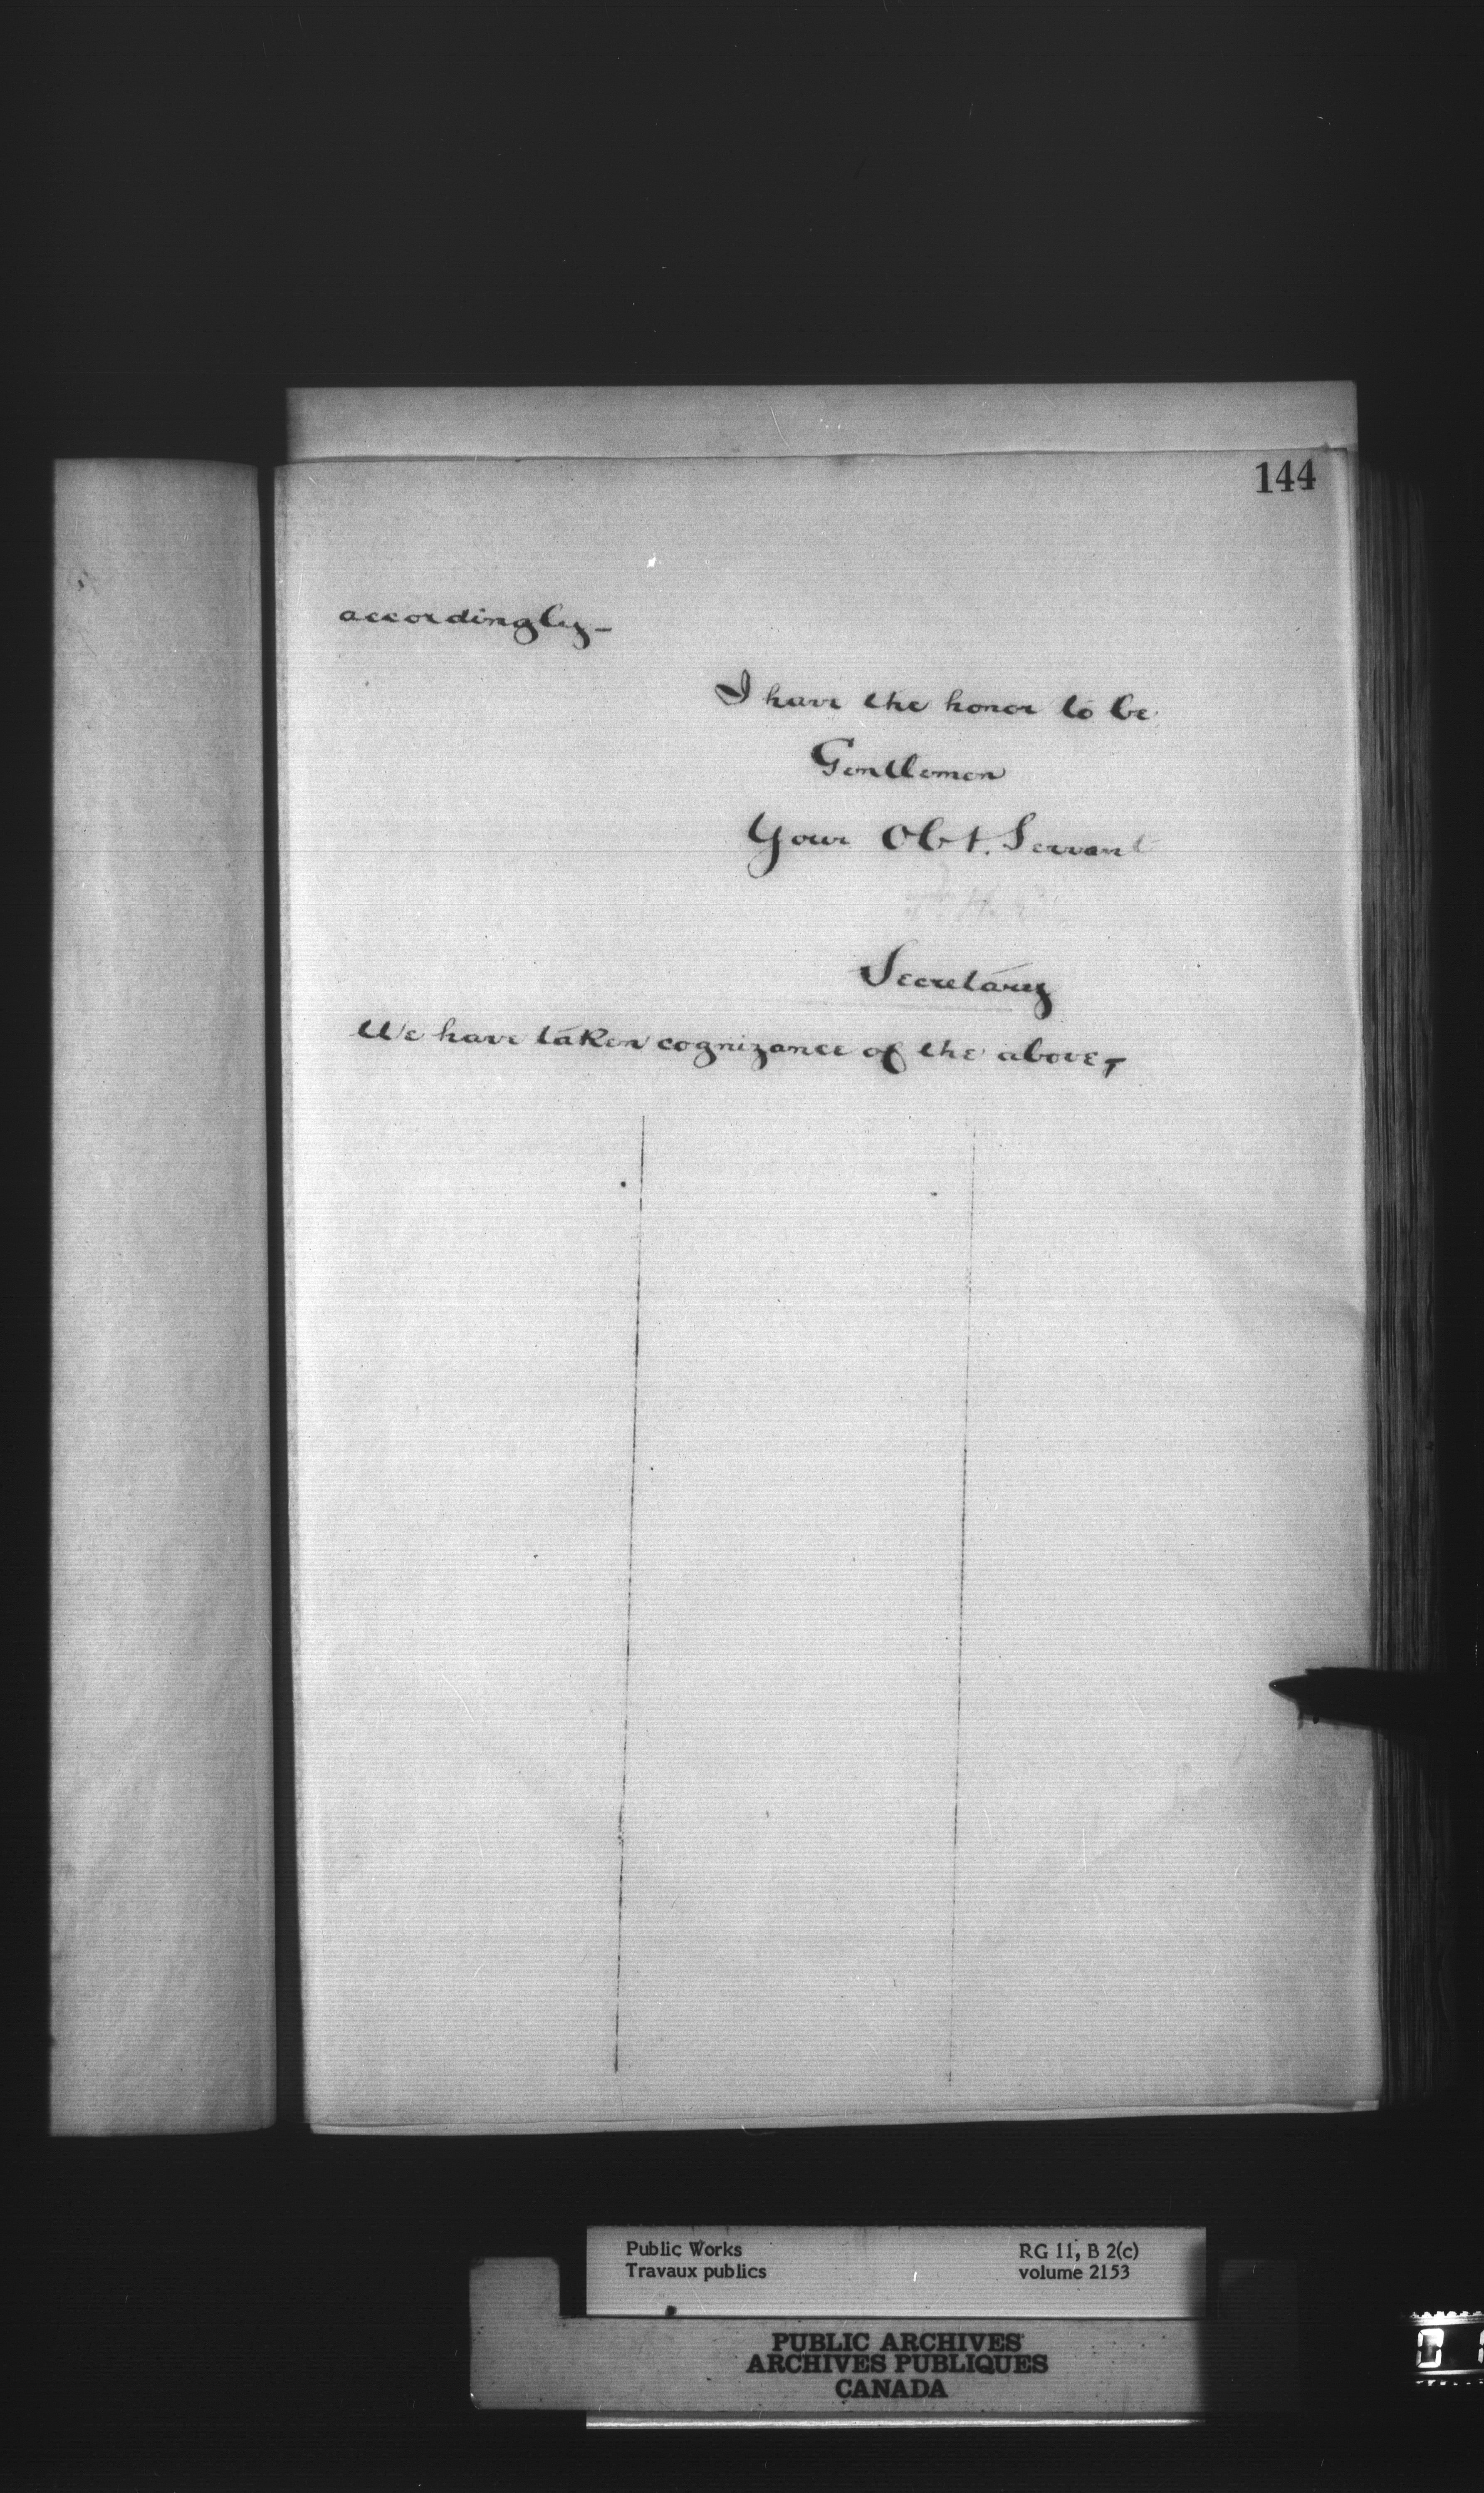 144
accordingly—
I have the honor to be
Gentlemen
Your Obt. Servant
Secretary
We have taken cognizance of the above,
Public Works
Travaux publics
RG 11, B 2(c)
volume 2153
PUBLIC ARCHIVES
ARCHIVES PUBLIQUES
CANADA